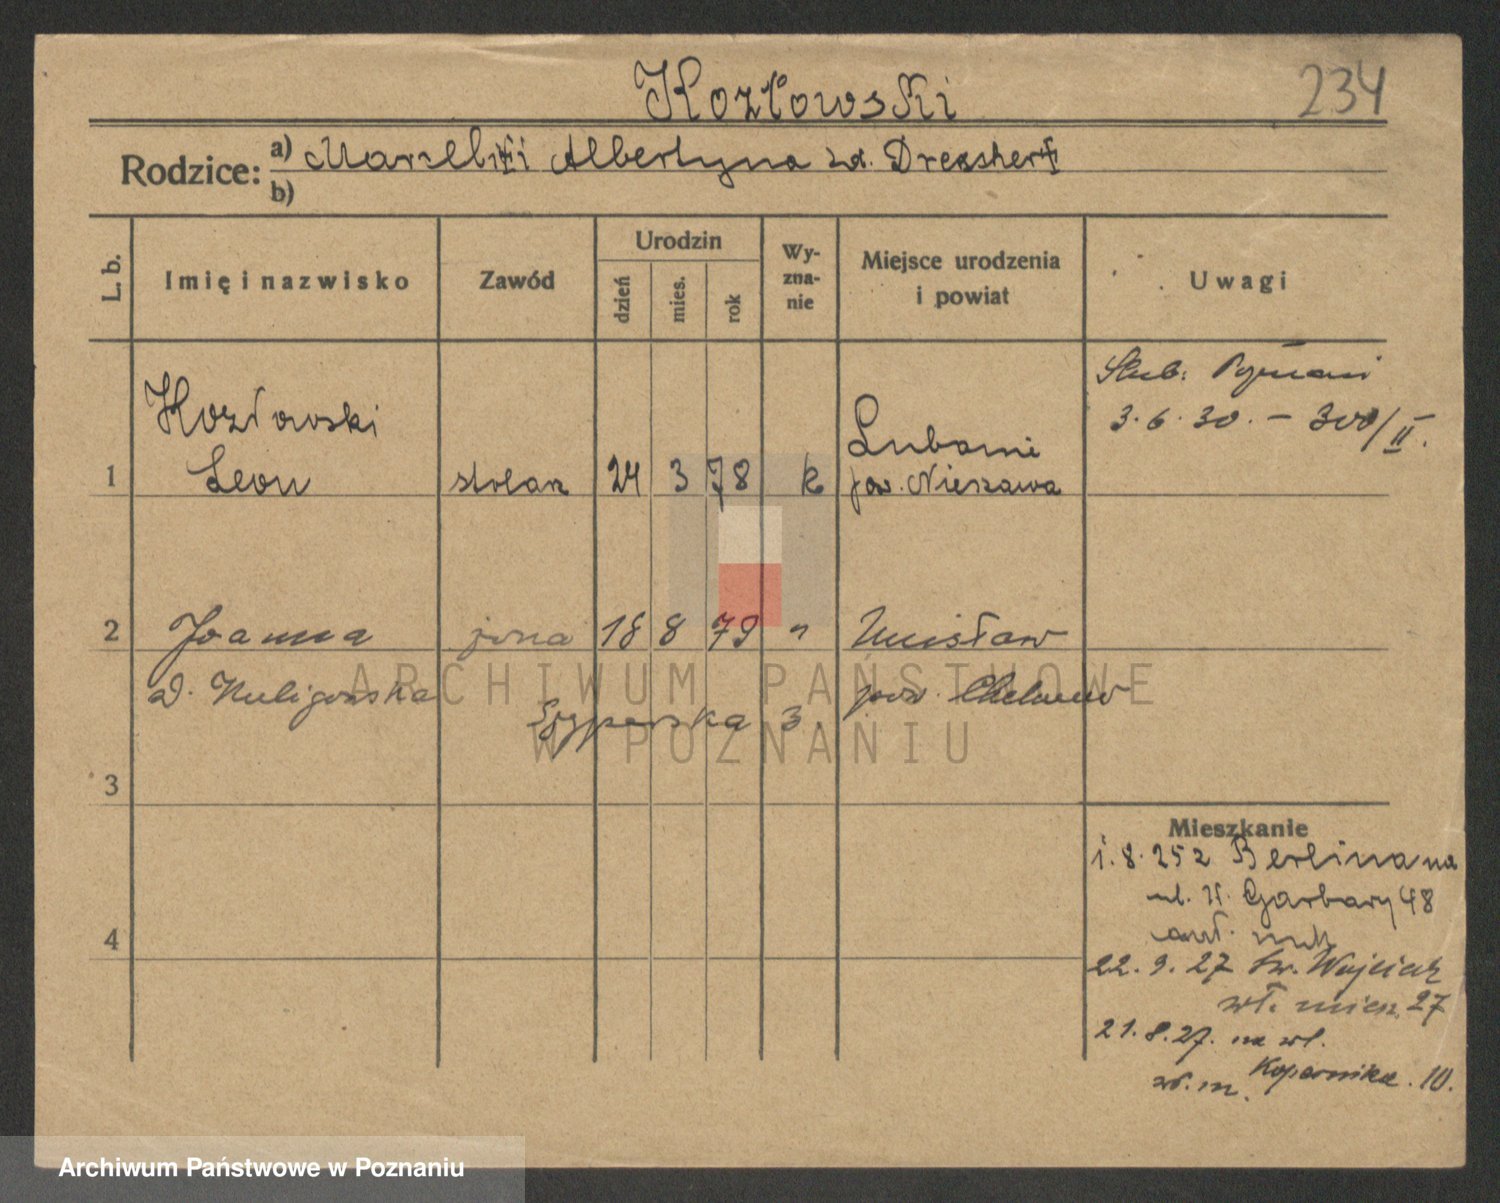 Kozłowski
234
Rodzice: a) Marceli † i Albertyna zd. Dreschert
b)
L. b.
Imię i nazwisko
Zawód
Urodzin
dzień
mies.
rok
Wy-
zna-
nie
Miejsce urodzenia
i powiat
Uwagi
Ślub: Poznań
3. 6. 30. - 300/II.
Kozłowski
1 Leon stolarz 24 3 78 k Lubanie
pow. Nieszawa
2 Joanna żona 18 8 79 " Unisław
zd. Kuligowska pow. Chełmno
3
Mieszkanie
1. 8. 25 z Berlina na
ul. W. Garbary 48
22. 9. 27 Św. Wojciech
wł. miesz. 27
21. 8. 27. na ul.
Kopernika. 10.
wł. m.
4
ARCHIWUM PAŃSTWOWE
W POZNANIU
Archiwum Państwowe w Poznaniu